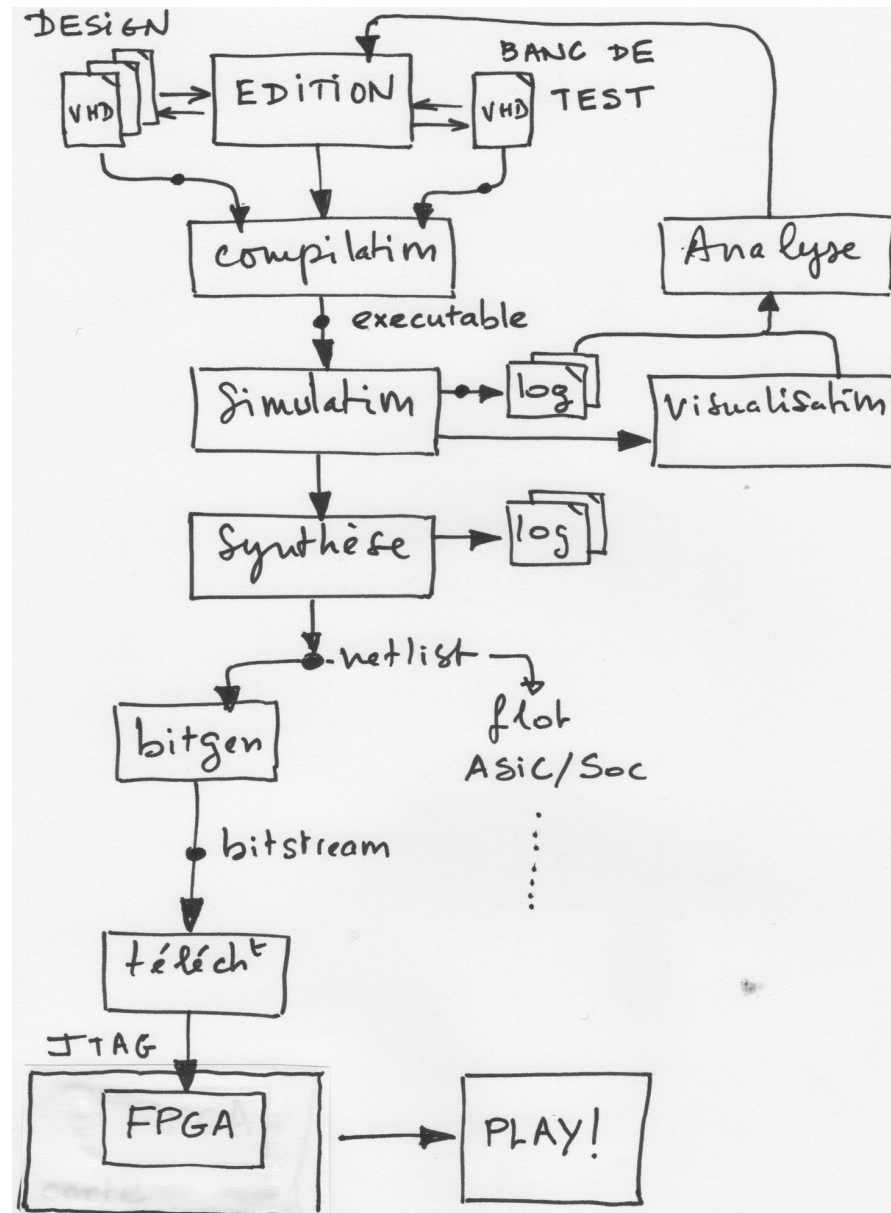 DESIGN
BANC DE
TEST
VHD
EDITION
VHD
compilation
Analyse
executable
Simulation
log
Visualisation
Synthèse
log
netlist
flot
ASIC/SOC
bitgen
bitstream
téléch^t
JTAG
FPGA
PLAY!
carte